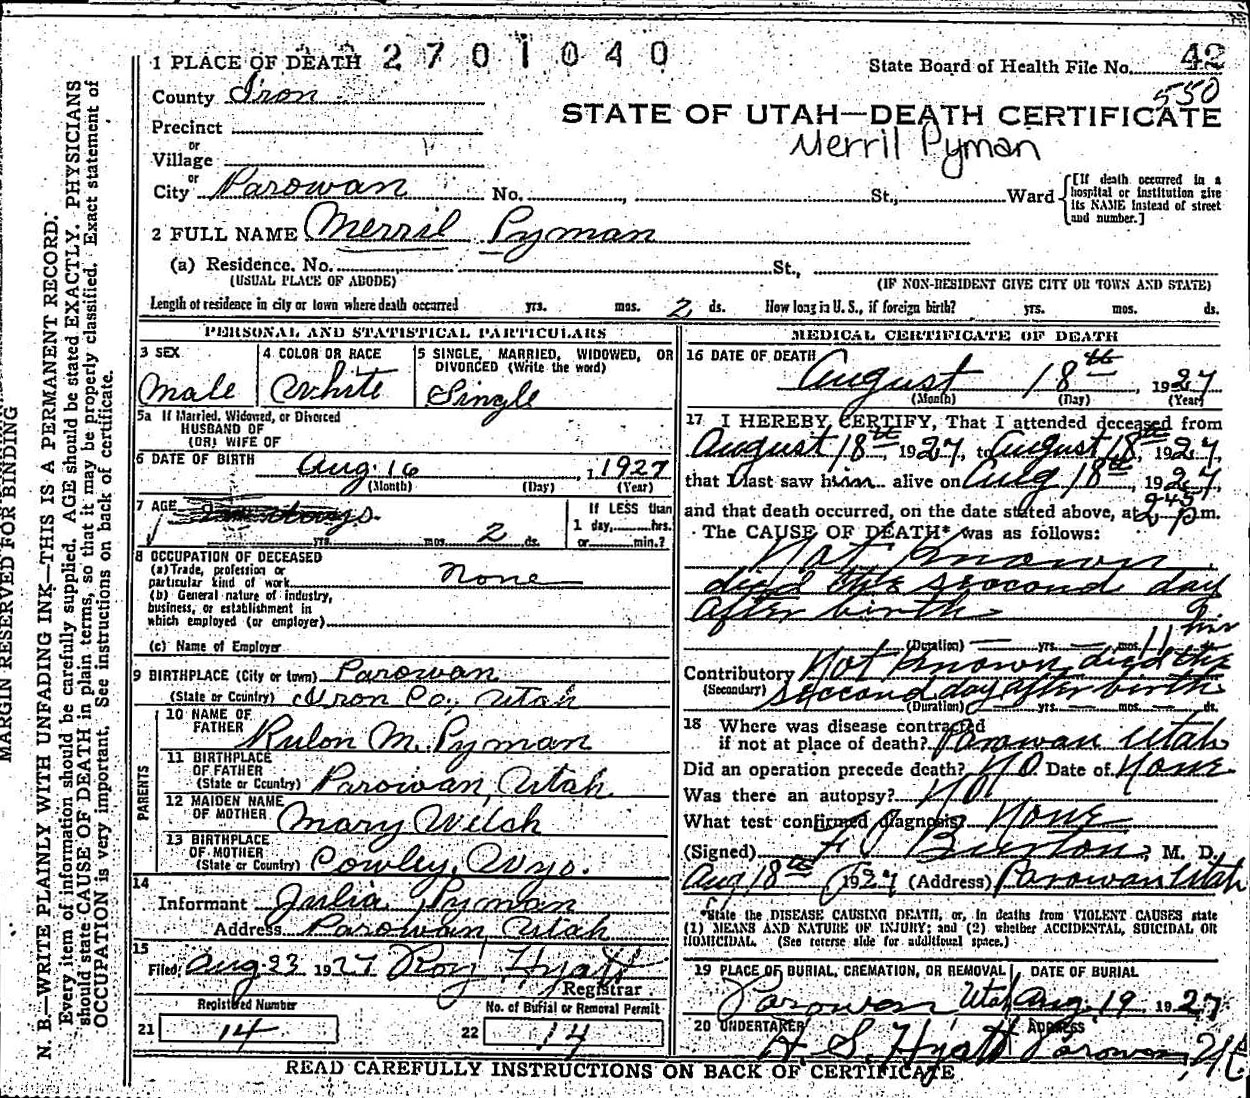 2701040
1 PLACE OF DEATH
State Board of Health File No. 42
550
County Iron
STATE OF UTAH—DEATH CERTIFICATE
Precinct
Merril Pyman
or
Village
or
City Parowan No. , St., Ward
[If death occurred in a hospital or institution give its NAME instead of street and number.]
2 FULL NAME Merril Pyman
(a) Residence. No. St.,
(USUAL PLACE OF ABODE) (IF NON-RESIDENT GIVE CITY OR TOWN AND STATE)
Length of residence in city or town where death occurred yrs. mos. 2 ds. How long in U. S., if foreign birth? yrs. mos. ds.
PERSONAL AND STATISTICAL PARTICULARS
3 SEX
Male
4 COLOR OR RACE
White
5 SINGLE, MARRIED, WIDOWED, OR DIVORCED (Write the word)
Single
5a If Married, Widowed, or Divorced
HUSBAND OF
(OR) WIFE OF
6 DATE OF BIRTH Aug. 16, 1927
(Month) (Day) (Year)
7 AGE
yrs. mos. 2 ds.
If LESS than
1 day, hrs.
or min.?
8 OCCUPATION OF DECEASED
(a) Trade, profession or
particular kind of work None
(b) General nature of industry,
business, or establishment in
which employed (or employer)
(c) Name of Employer
9 BIRTHPLACE (City or town) Parowan
(State or Country) Iron Co., Utah
PARENTS
10 NAME OF
FATHER Rulon M. Pyman
11 BIRTHPLACE
OF FATHER
(State or Country) Parowan, Utah
12 MAIDEN NAME
OF MOTHER Mary Welch
13 BIRTHPLACE
OF MOTHER
(State or Country) Cowley, Wyo.
14
Informant Julia Pyman
Address Parowan Utah
15
Filed, Aug 23 1927 Roy Hyatt
Registrar
Registered Number
21 14
No. of Burial or Removal Permit
22 14
MEDICAL CERTIFICATE OF DEATH
16 DATE OF DEATH
August 18th, 1927
(Month) (Day) (Year)
17 I HEREBY CERTIFY, That I attended deceased from
August 18th, 1927, to August 18th, 1927,
that I last saw him alive on Aug 18th, 1927,
and that death occurred, on the date stated above, at 2:45 p m.
The CAUSE OF DEATH* was as follows:
Not Known
died the seccond day
after birth
11 hrs
(Duration) yrs. mos.
Contributory Not Known died the
(Secondary) seccond day after birth
(Duration) yrs. mos. ds.
18 Where was disease contracted
if not at place of death? Parowan Utah
Did an operation precede death? No Date of None
Was there an autopsy? No
What test confirmed diagnosis? None
(Signed) Burton, M. D.
Aug 18th 1927 (Address) Parowan Utah
*State the DISEASE CAUSING DEATH, or, in deaths from VIOLENT CAUSES state
(1) MEANS AND NATURE OF INJURY; and (2) whether ACCIDENTAL, SUICIDAL OR
HOMICIDAL. (See reverse side for additional space.)
19 PLACE OF BURIAL, CREMATION, OR REMOVAL DATE OF BURIAL
Parowan Utah Aug. 19 1927
20 UNDERTAKER ADDRESS
H. S. Hyatt Parowan, Ut
READ CAREFULLY INSTRUCTIONS ON BACK OF CERTIFICATE
MARGIN RESERVED FOR BINDING
N. B.—WRITE PLAINLY WITH UNFADING INK—THIS IS A PERMANENT RECORD.
Every item of information should be carefully supplied. AGE should be stated EXACTLY. PHYSICIANS
should state CAUSE OF DEATH in plain terms, so that it may be properly classified. Exact statement of
OCCUPATION is very important. See instructions on back of certificate.